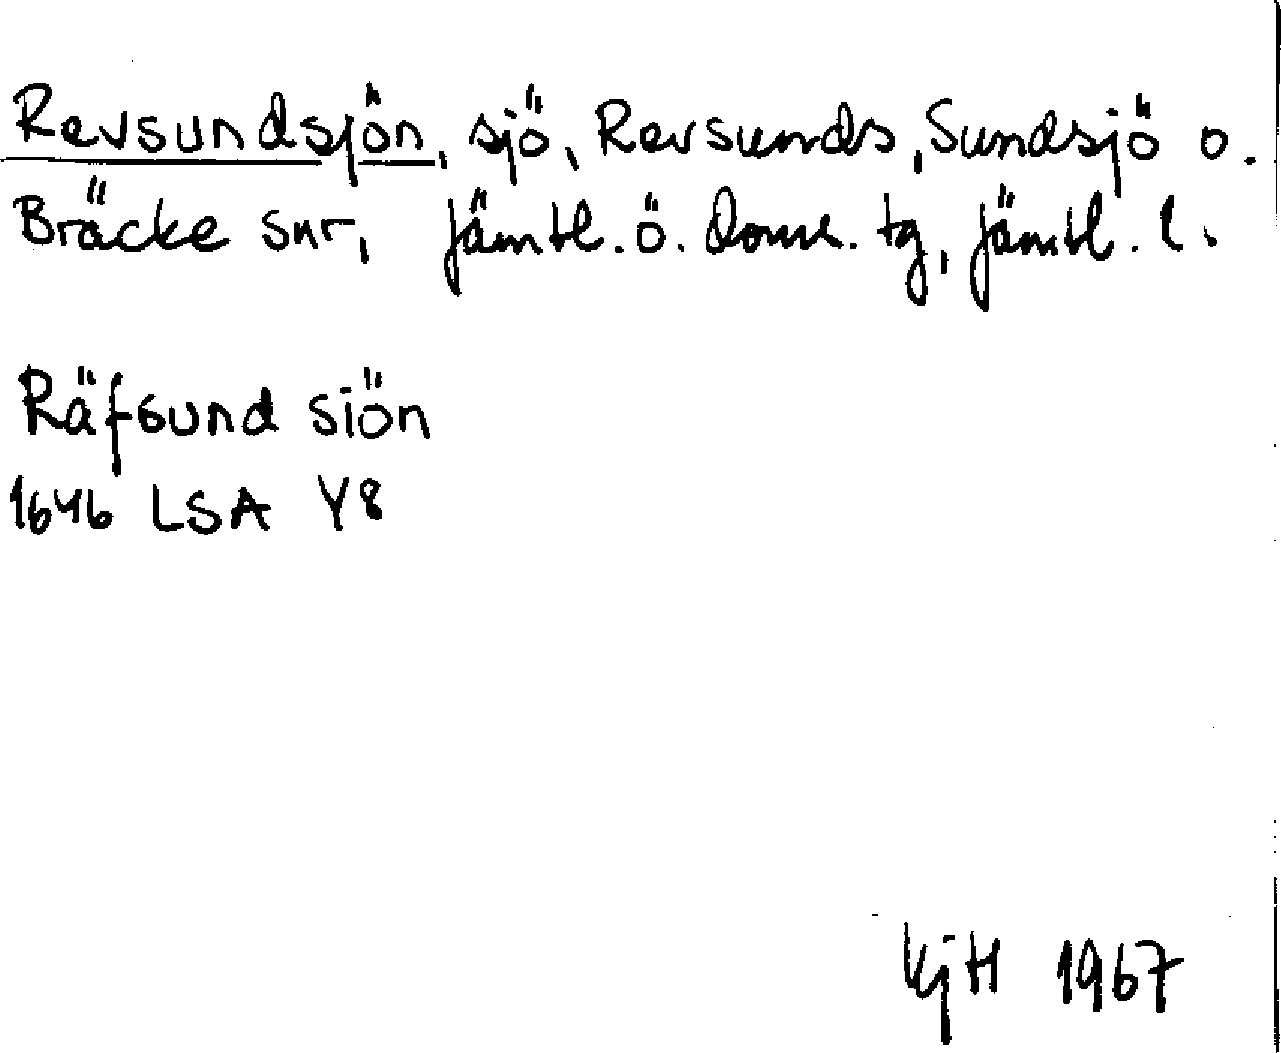 Revsundsjön, sjö, Revsunds, Sundsjö o.
Bräcke snr, Jämtl. ö. doms. tg, Jämtl. l.
Räfsund siön
1646 LSA Y8
KjH 1967